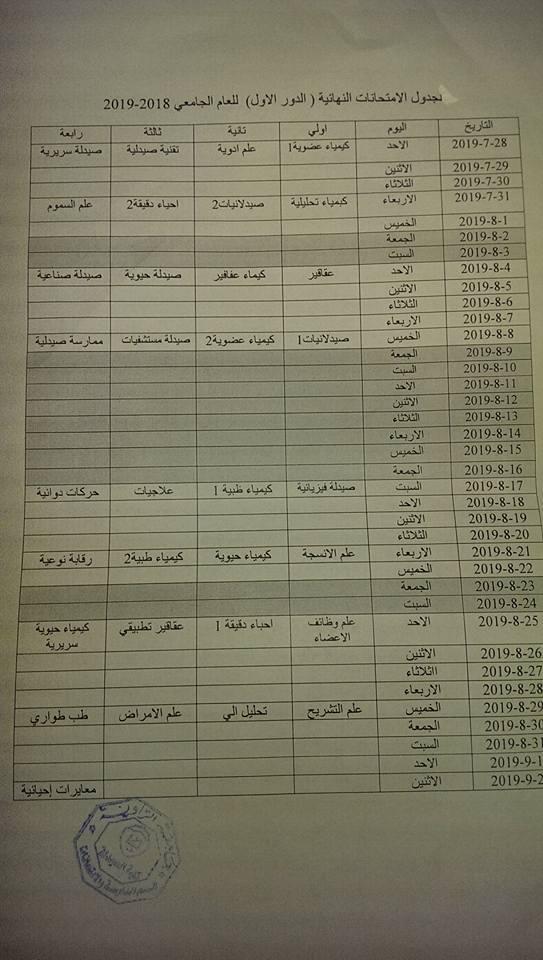 جدول الامتحانات النهائية ( الدور الاول) للعام الجامعي 2018-2019
التاريخ اليوم اولي ثانية ثالثة رابعة
2019-7-28 الاحد كيمياء عضوية1 علم ادوية تقنية صيدلية صيدلة سريرية
2019-7-29 الاثنين
2019-7-30 الثلاثاء
2019-7-31 الاربعاء كيمياء تحليلية صيدلانيات2 احياء دقيقة2 علم السموم
2019-8-1 الخميس
2019-8-2 الجمعة
2019-8-3 السبت
2019-8-4 الاحد عقاقير كيماء عقاقير صيدلة حيوية صيدلة صناعية
2019-8-5 الاثنين
2019-8-6 الثلاثاء
2019-8-7 الاربعاء
2019-8-8 الخميس صيدلانيات1 كيمياء عضوية2 صيدلة مستشفيات ممارسة صيدلية
2019-8-9 الجمعة
2019-8-10 السبت
2019-8-11 الاحد
2019-8-12 الاثنين
2019-8-13 الثلاثاء
2019-8-14 الاربعاء
2019-8-15 الخميس
2019-8-16 الجمعة
2019-8-17 السبت صيدلة فيزيائية كيمياء طبية 1 علاجيات حركات دوائية
2019-8-18 الاحد
2019-8-19 الاثنين
2019-8-20 الثلاثاء
2019-8-21 الاربعاء علم الانسجة كيمياء حيوية كيمياء طبية2 رقابة نوعية
2019-8-22 الخميس
2019-8-23 الجمعة
2019-8-24 السبت
2019-8-25 الاحد علم وظائف احياء دقيقة 1 عقاقير تطبيقي كيمياء حيوية
الاعضاء سريرية
2019-8-26 الاثنين
2019-8-27 الثلاثاء
2019-8-28 الاربعاء
2019-8-29 الخميس علم التشريح تحليل الي علم الامراض طب طواري
2019-8-30 الجمعة
2019-8-31 السبت
2019-9-1 الاحد
2019-9-2 الاثنين معايرات إحيائية